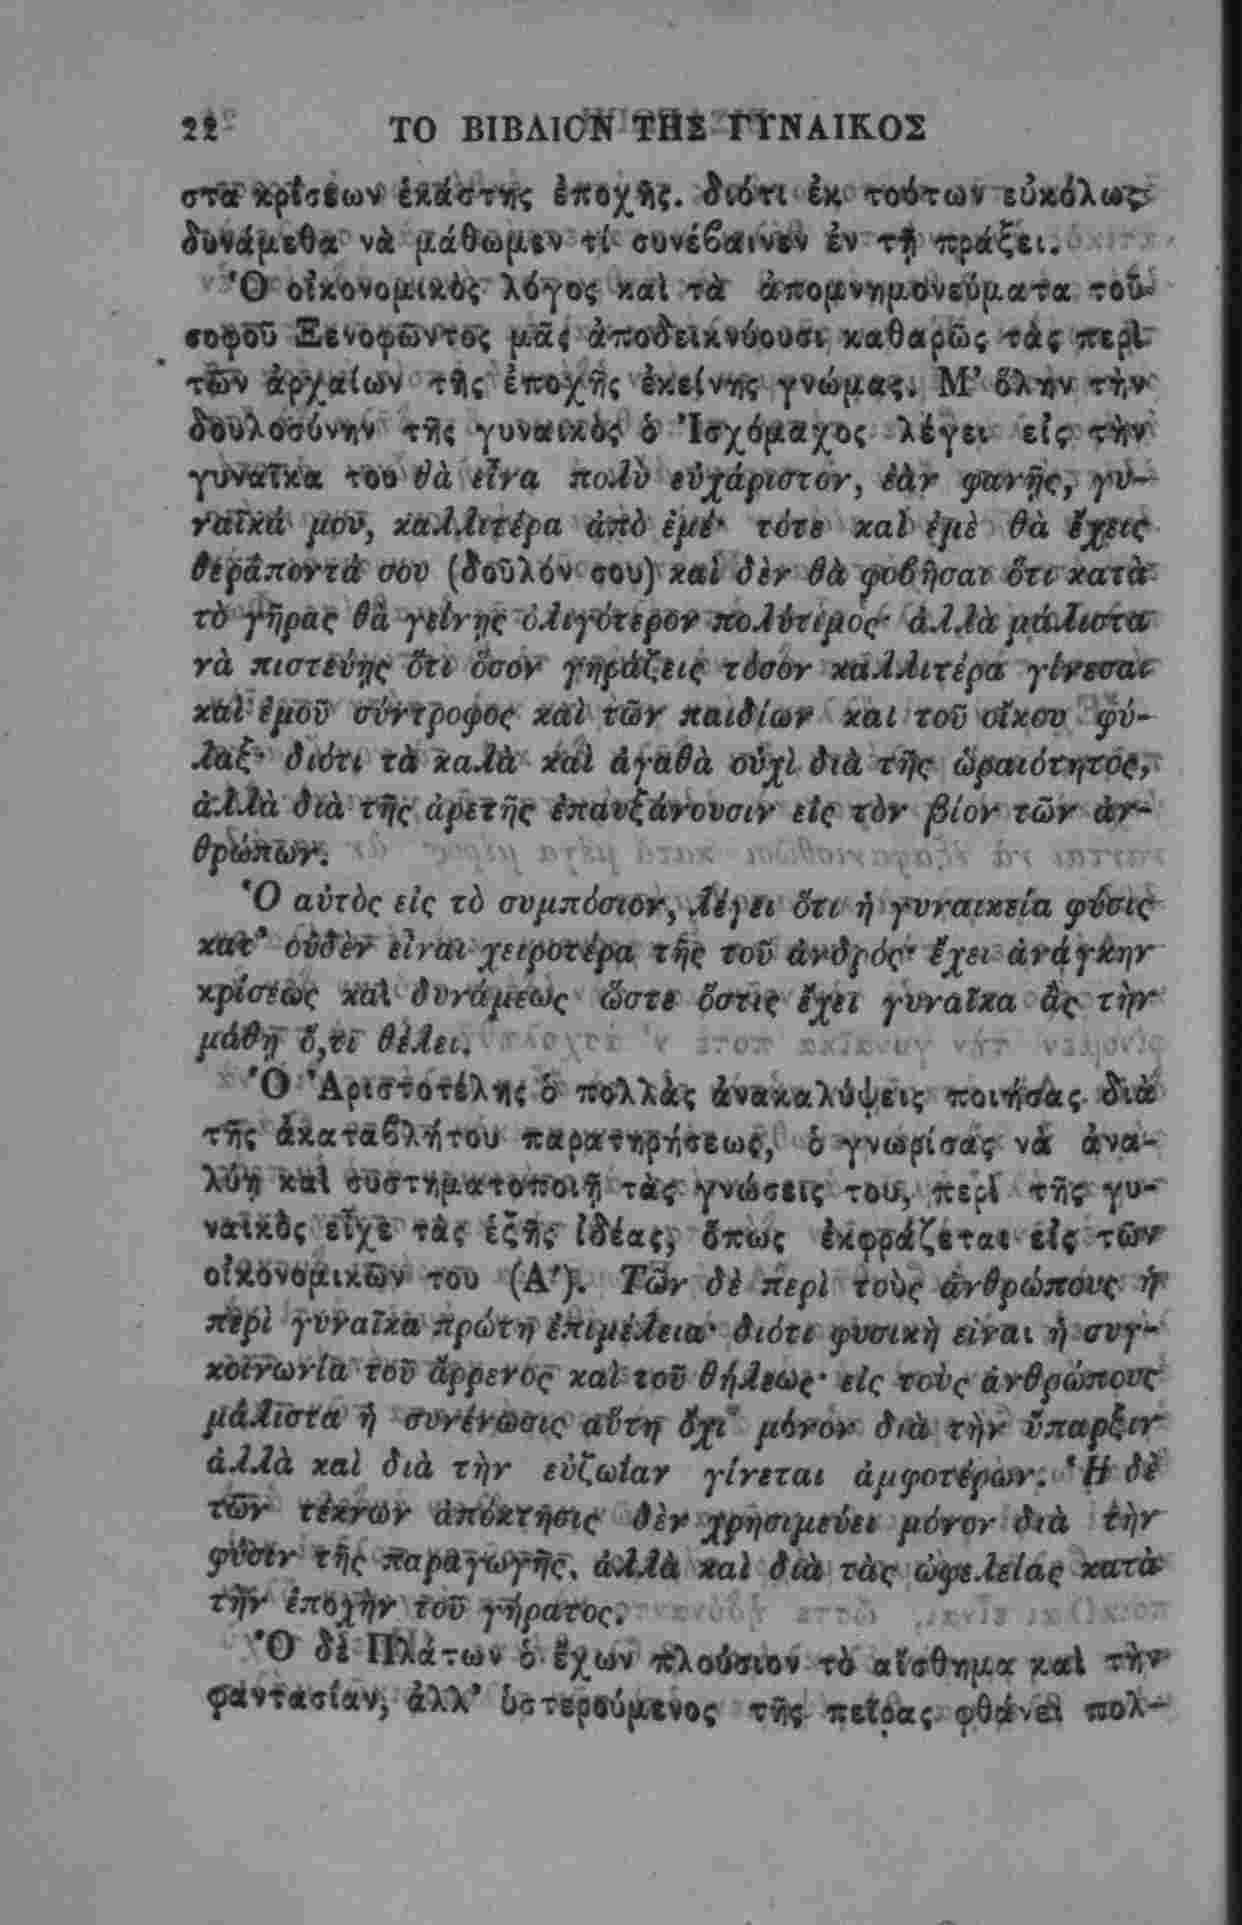 22 ΤΟ ΒΙΒΛΙΟΝ ΤΗΣ ΓΥΝΑΙΚΟΣ
στα κρίσεων ἑκάστης ἐποχῆς. διότι ἐκ τούτων εὐκόλως
δυνάμεθα νὰ μάθωμεν τί συνέβαινεν ἐν τῇ πράξει.
Ὁ οἰκονομικὸς λόγος καὶ τὰ ἀπομνημονεύματα τοῦ
σοφοῦ Ξενοφῶντος μᾶς ἀποδεικνύουσι καθαρῶς τὰς περὶ
τῶν ἀρχαίων τῆς ἐποχῆς ἐκείνης γνώμας. Μ' ὅλην τὴν
δουλοσύνην τῆς γυναικὸς ὁ Ἰσχόμαχος λέγει εἰς τὴν
γυναῖκα του θὰ εἶνα πολὺ εὐχάριστον, ἐὰν φανῇς, γυ-
ναῖκά μου, καλλιτέρα ἀπὸ ἐμέ· τότε καὶ ἐμὲ θὰ ἔχεις
θεράποντά σου (δοῦλόν σου) καὶ δὲν θὰ φοβῆσαι ὅτι κατὰ
τὸ γῆρας θὰ γείνῃς ὀλιγότερον πολύτιμος· ἀλλὰ μάλιστα
νὰ πιστεύῃς ὅτι ὅσον γηράζεις τόσον καλλιτέρα γίνεσαι
καὶ ἐμοῦ σύντροφος καὶ τῶν παιδίων και τοῦ οἴκου φύ-
λαξ· διότι τὰ καλὰ καὶ ἀγαθὰ οὐχὶ διὰ τῆς ὡραιότητος,
ἀλλὰ διὰ τῆς ἀρετῆς ἐπαυξάνουσιν εἰς τὸν βίον τῶν ἀν-
θρώπων.
Ὁ αὐτὸς εἰς τὸ συμπόσιον, λέγει ὅτι ἡ γυναικεία φύσις
κατ' οὐδὲν εἶναι χειροτέρα τῆς τοῦ ἀνδρός· ἔχει ἀνάγκην
κρίσεως καὶ δυνάμεως ὥστε ὅστις ἔχει γυναῖκα ἂς τὴν
μάθῃ ὅ,τι θέλει.
Ὁ Ἀριστοτέλης ὁ πολλὰς ἀνακαλύψεις ποιήσας διὰ
τῆς ἀκαταβλήτου παρατηρήσεως, ὁ γνωρίσας νὰ ἀνα-
λύῃ καὶ συστηματοποιῇ τὰς γνώσεις του, περὶ τῆς γυ-
ναικὸς εἶχε τὰς ἑξῆς ἰδέας, ὅπως ἐκφράζεται εἰς τῶν
οἰκονομικῶν του (Α'). Τῶν δὲ περὶ τοὺς ἀνθρώπους ἡ
περὶ γυναῖκα πρώτη ἐπιμέλεια· διότι φυσικὴ εἶναι ἡ συγ-
κοινωνία τοῦ ἄρρενος καὶ τοῦ θήλεως· εἰς τοὺς ἀνθρώπους
μάλιστα ἡ συνένωσις αὕτη ὄχι μόνον διὰ τὴν ὕπαρξιν
ἀλλὰ καὶ διὰ τὴν εὐζωΐαν γίνεται ἀμφοτέρων. Ἡ δὲ
τῶν τέκνων ἀπόκτησις δὲν χρησιμεύει μόνον διὰ τὴν
φύσιν τῆς παραγωγῆς, ἀλλὰ καὶ διὰ τὰς ὠφελείας κατὰ
τὴν ἐποχὴν τοῦ γήρατος.
Ὁ δὲ Πλάτων ὁ ἔχων πλούσιον τὸ αἴσθημα καὶ τὴν
φαντασίαν, ἀλλ' ὑστερούμενος τῆς πείρας φθάνει πολ-